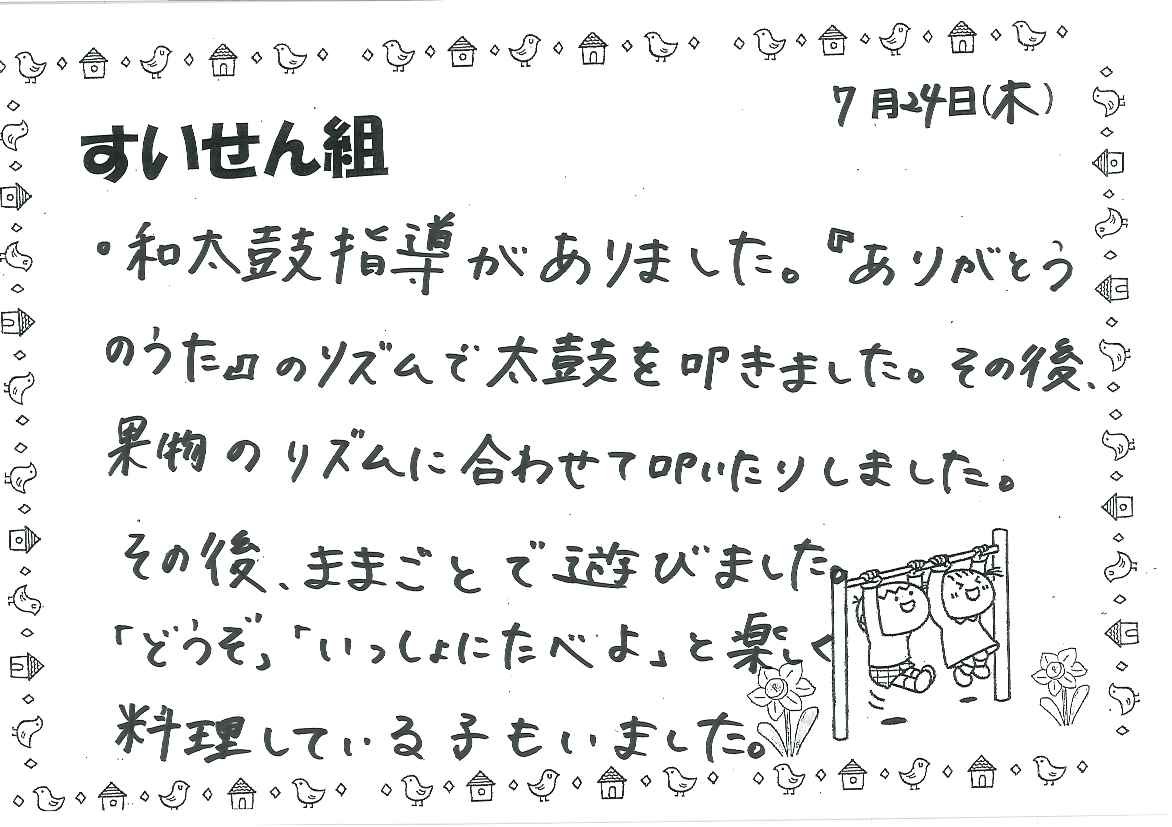 7月24日(木)
すいせん組
・和太鼓指導がありました。『ありがとう
のうた』のリズムで太鼓を叩きました。その後、
果物のリズムに合わせて叩いたりしました。
その後、ままごとで遊びました。
「どうぞ」「いっしょにたべよ」と楽しく
料理している子もいました。